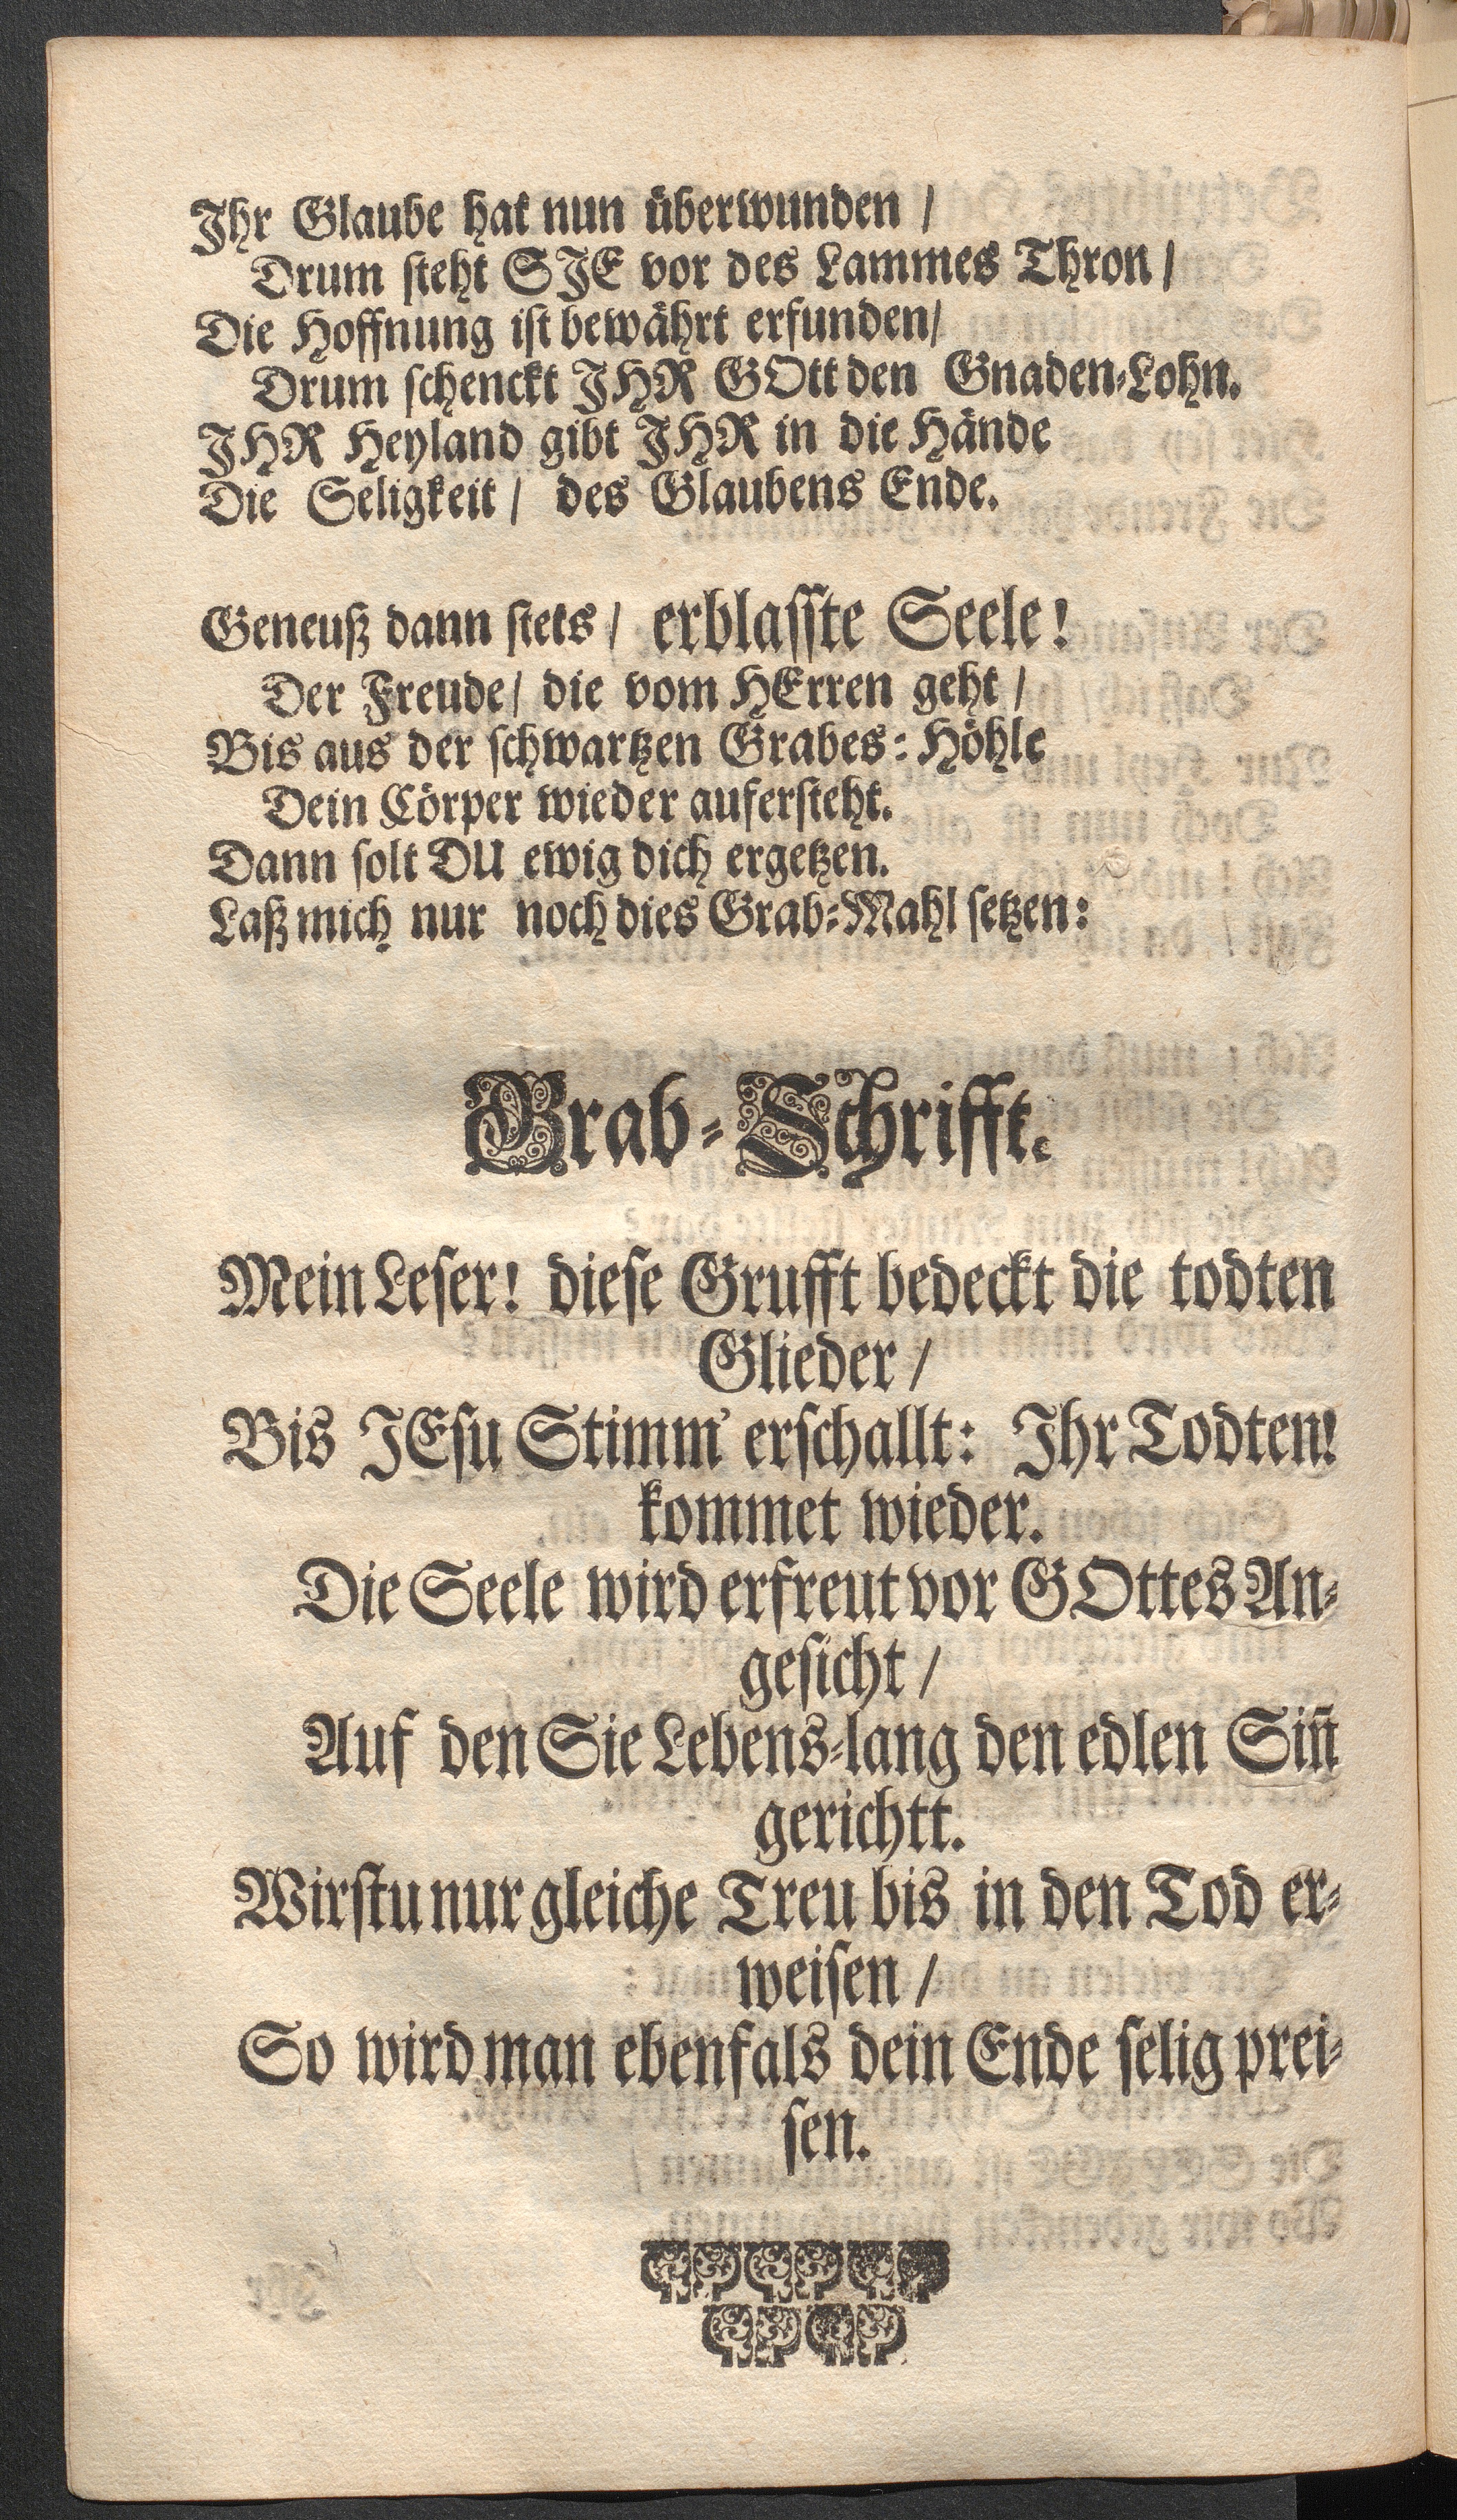 Ihr Glaube hat nun überwunden /
Drum ſteht SIE vor des Lammes Thron /
Die Hoffnung iſt bewährt erfunden /
Drum ſchenckt IHR GOtt den Gnaden-Lohn.
IHR Heyland gibt IHR in die Hände
Die Seligkeit / des Glaubens Ende.
Geneuß dann ſtets / erblaſſte Seele!
Der Freude / die vom HErren geht /
Bis aus der ſchwartzen Grabes-Höhle
Dein Cörper wieder auferſteht.
Dann ſolt DU ewig dich ergetzen.
Laß mich nur noch dies Grab-Mahl ſetzen:
Grab-Schrifft.
Mein Leſer! dieſe Grufft bedeckt die todten
Glieder /
Bis JEſu Stimm' erſchallt: Ihr Todten!
kommet wieder.
Die Seele wird erfreut vor GOttes An-
geſicht /
Auf den Sie Lebens-lang den edlen Sin̄
gerichtt.
Wirſtu nur gleiche Treu bis in den Tod er-
weiſen /
So wird man ebenfals dein Ende ſelig prei-
ſen.